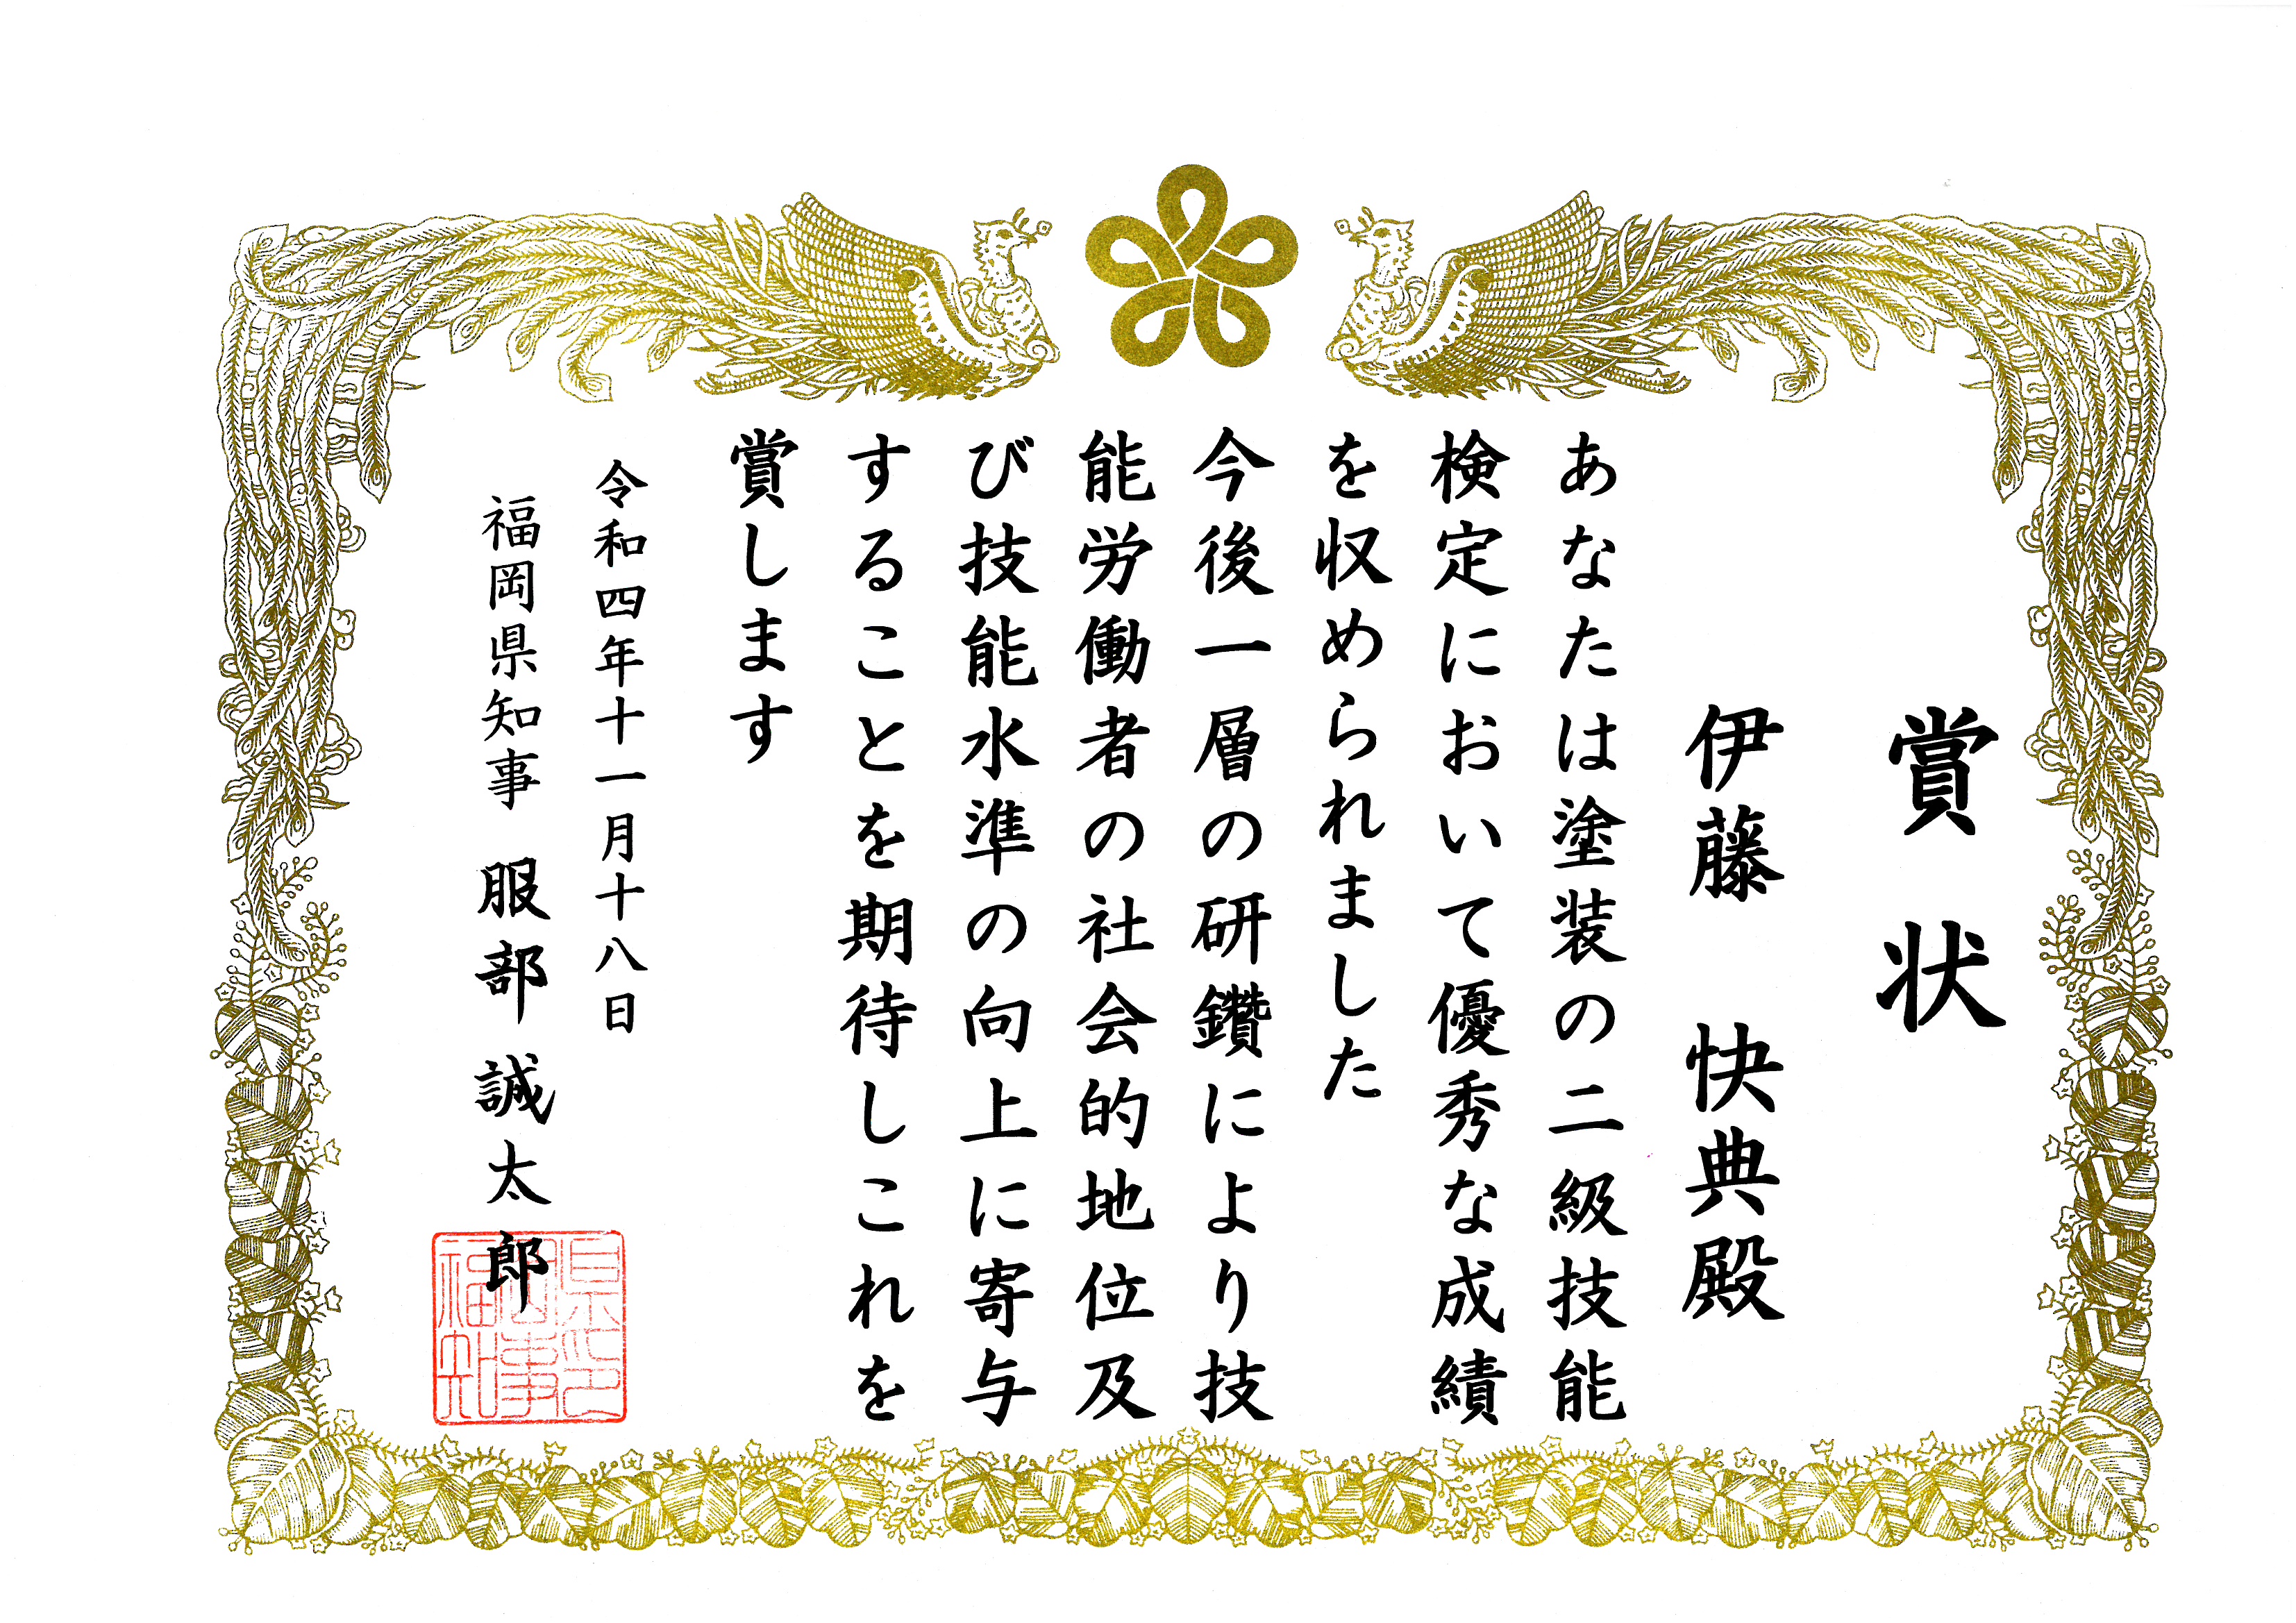 賞状
伊藤 快典殿
あなたは塗装の二級技能
検定において優秀な成績
を収められました
今後一層の研鑽により技
能労働者の社会的地位及
び技能水準の向上に寄与
することを期待しこれを
賞します
令和四年十一月十八日
福岡県知事 服部誠太郎
福岡県知事印